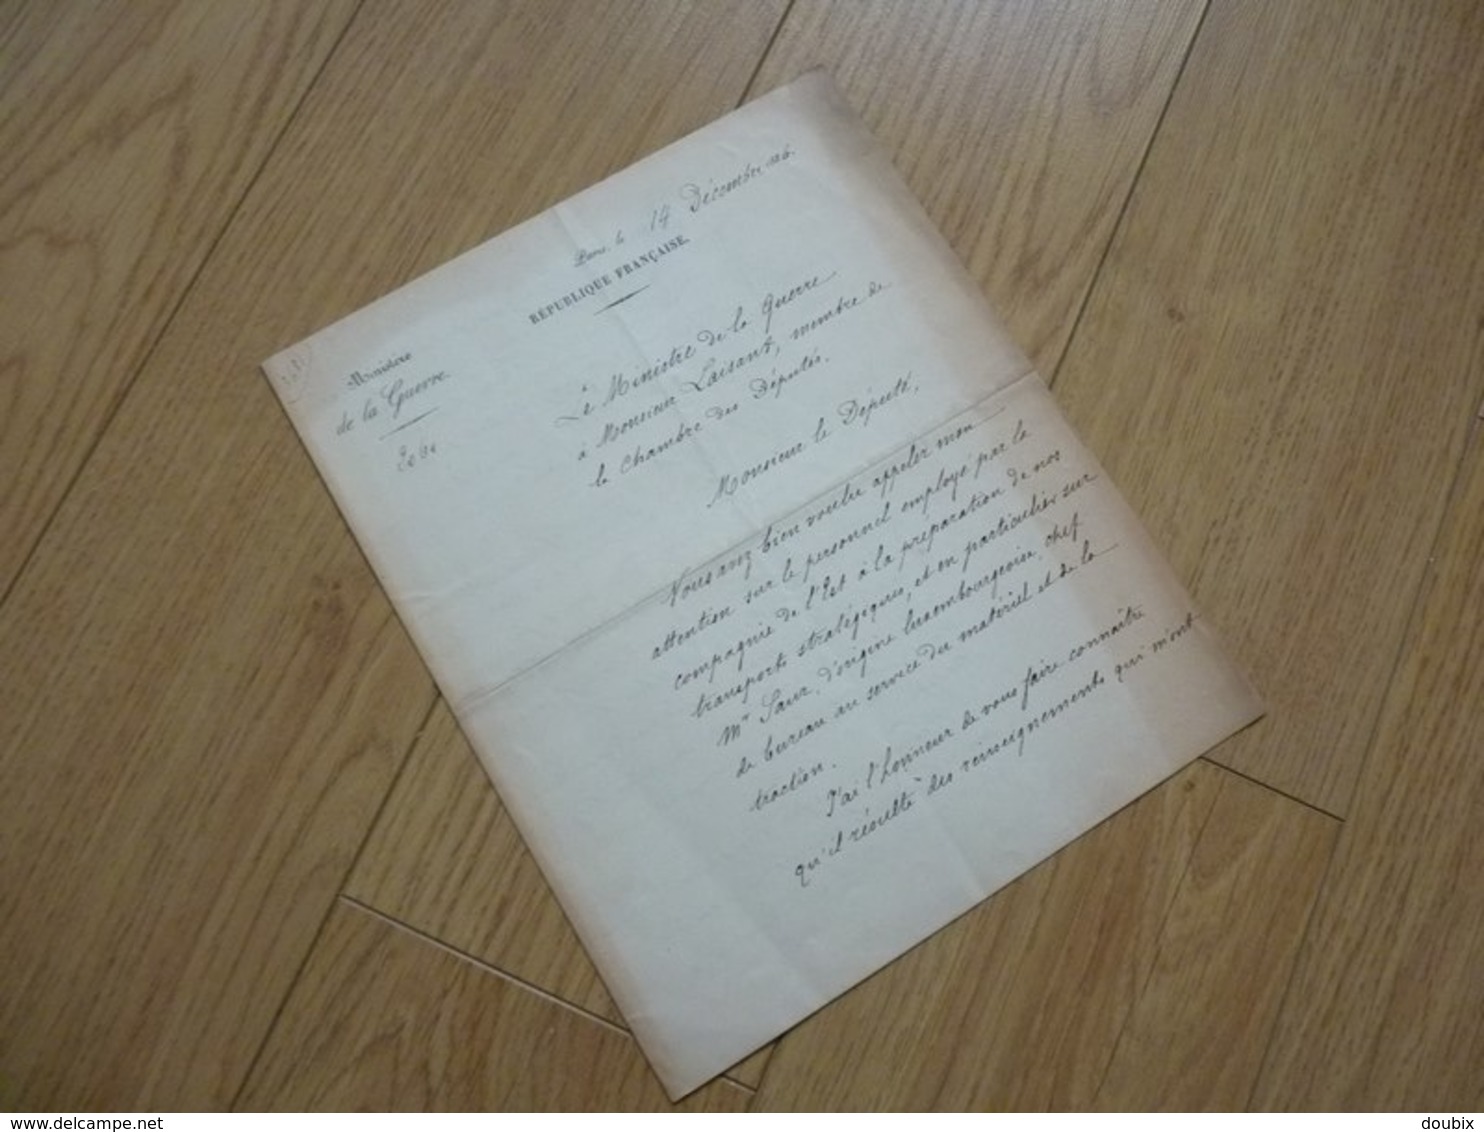 Paris, le 14 Décembre 1886.
RÉPUBLIQUE FRANÇAISE.
Ministère
de la Guerre.
Le Ministre de la Guerre
à Monsieur Laisant, membre de
la Chambre des Députés.
Monsieur le Député,
Vous avez bien voulu appeler mon
attention sur le personnel employé par la
compagnie de l'Est à la préparation de nos
transports stratégiques, et en particulier sur
Mr Saur, d'origine luxembourgeoise, chef
de bureau au service du matériel et de la
traction.
J'ai l'honneur de vous faire connaître
qu'il résulte des renseignements qui m'ont
www.delcampe.net
doubix